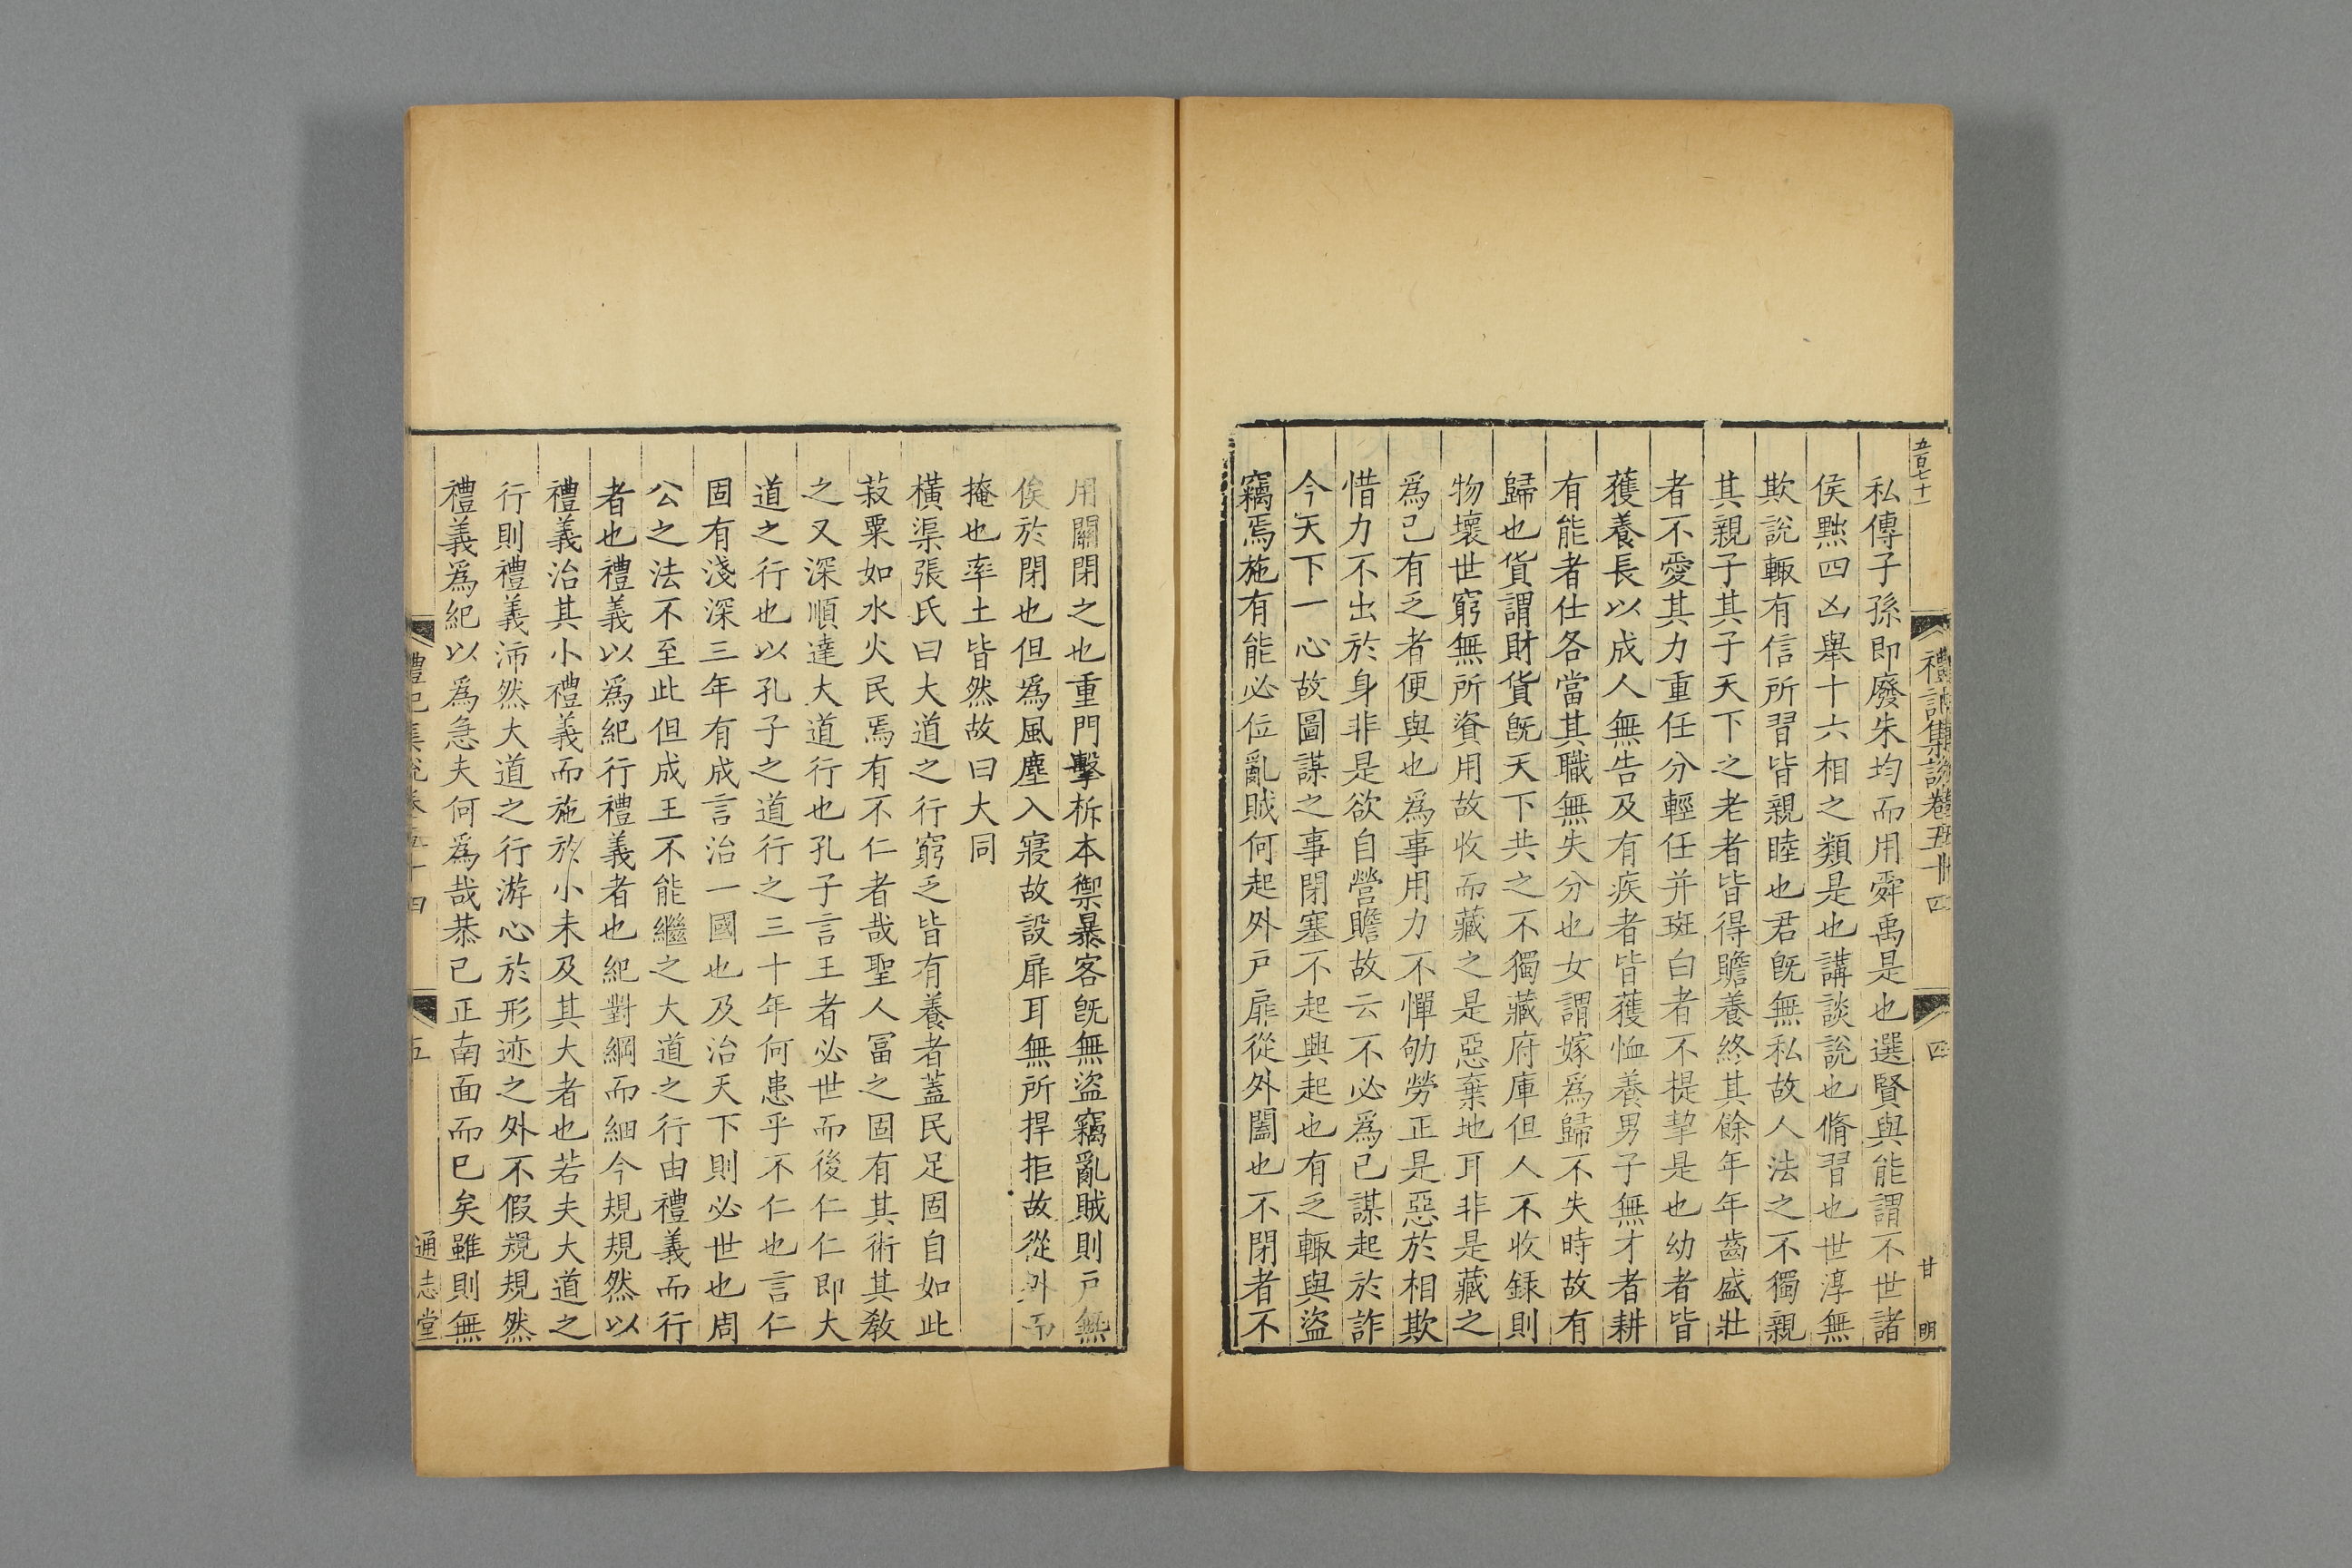 五百七十一
禮記集說卷五十四
四
甘
明
私傳子孫即廢朱均而用舜禹是也選賢與能謂不世諸
侯黜四凶舉十六相之類是也講談說也脩習也世淳無
欺說輙有信所習皆親睦也君旣無私故人法之不獨親
其親子其子天下之老者皆得贍養終其餘年年齒盛壯
者不愛其力重任分輕任并斑白者不提挈是也幼者皆
獲養長以成人無告及有疾者皆獲恤養男子無才者耕
有能者仕各當其職無失分也女謂嫁爲歸不失時故有
歸也貨謂財貨旣天下共之不獨藏府庫但人不收錄則
物壞世窮無所資用故收而藏之是惡棄地耳非是藏之
爲己有乏者便與也爲事用力不憚劬勞正是惡於相欺
惜力不出於身非是欲自營贍故云不必爲己謀起於詐
今天下一心故圖謀之事閉塞不起興起也有乏輙與盜
竊焉施有能必位亂賊何起外戸扉從外闔也不閉者不
用關閉之也重門擊柝本禦暴客旣無盜竊亂賊則戸無
俟於閉也但爲風塵入寢故設扉耳無所捍拒故從外而
掩也率土皆然故曰大同
橫渠張氏曰大道之行窮乏皆有養者蓋民足固自如此
菽粟如水火民焉有不仁者哉聖人冨之固有其術其敎
之又深順達大道行也孔子言王者必世而後仁仁即大
道之行也以孔子之道行之三十年何患乎不仁也言仁
固有淺深三年有成言治一國也及治天下則必世也周
公之法不至此但成王不能繼之大道之行由禮義而行
者也禮義以爲紀行禮義者也紀對綱而細今規規然以
禮義治其小禮義而施於小未及其大者也若夫大道之
行則禮義沛然大道之行游心於形迹之外不假規規然
禮義爲紀以爲急夫何爲哉恭己正南面而已矣雖則無
禮記集說卷五十四
五
通志堂